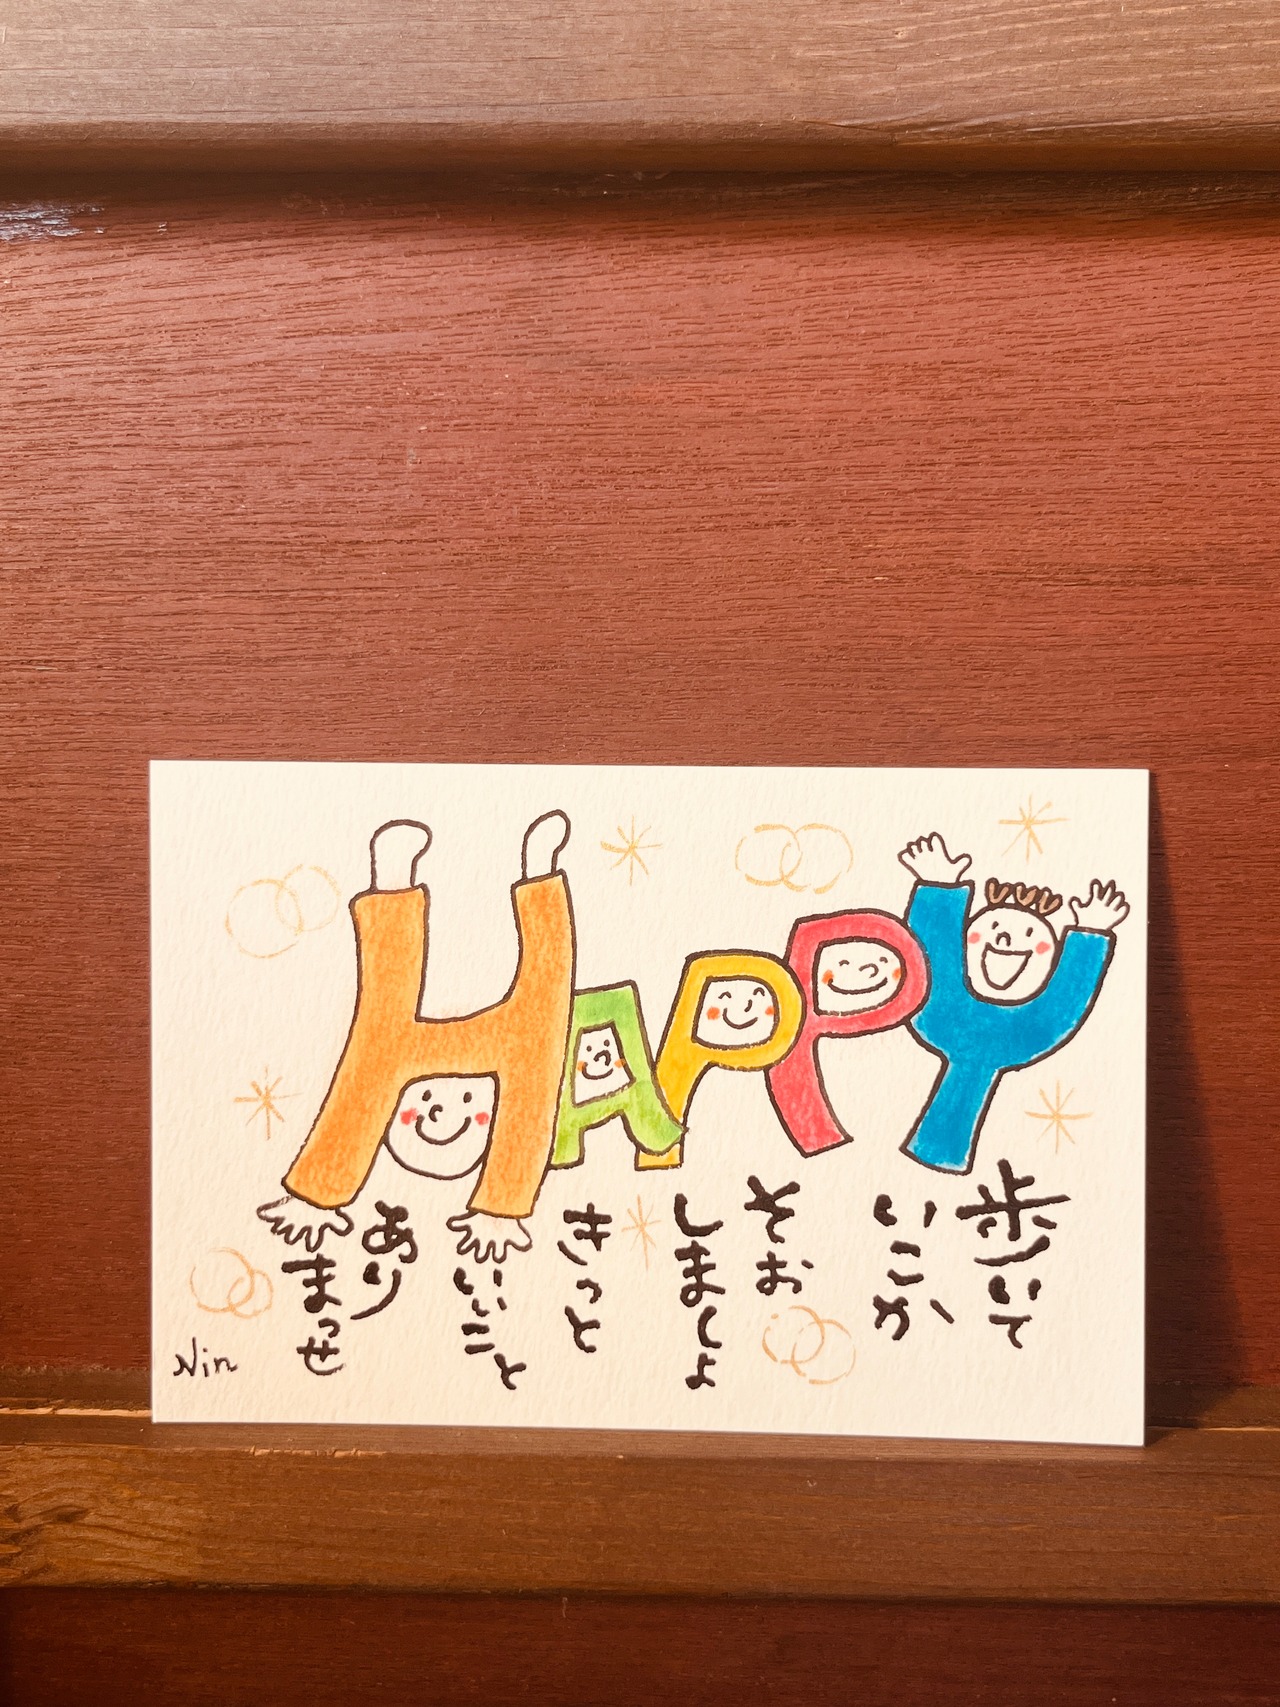 HAPPY
歩いて
いこか
そお
しましょ
きっと
いいこと
あり
まっせ
Nin